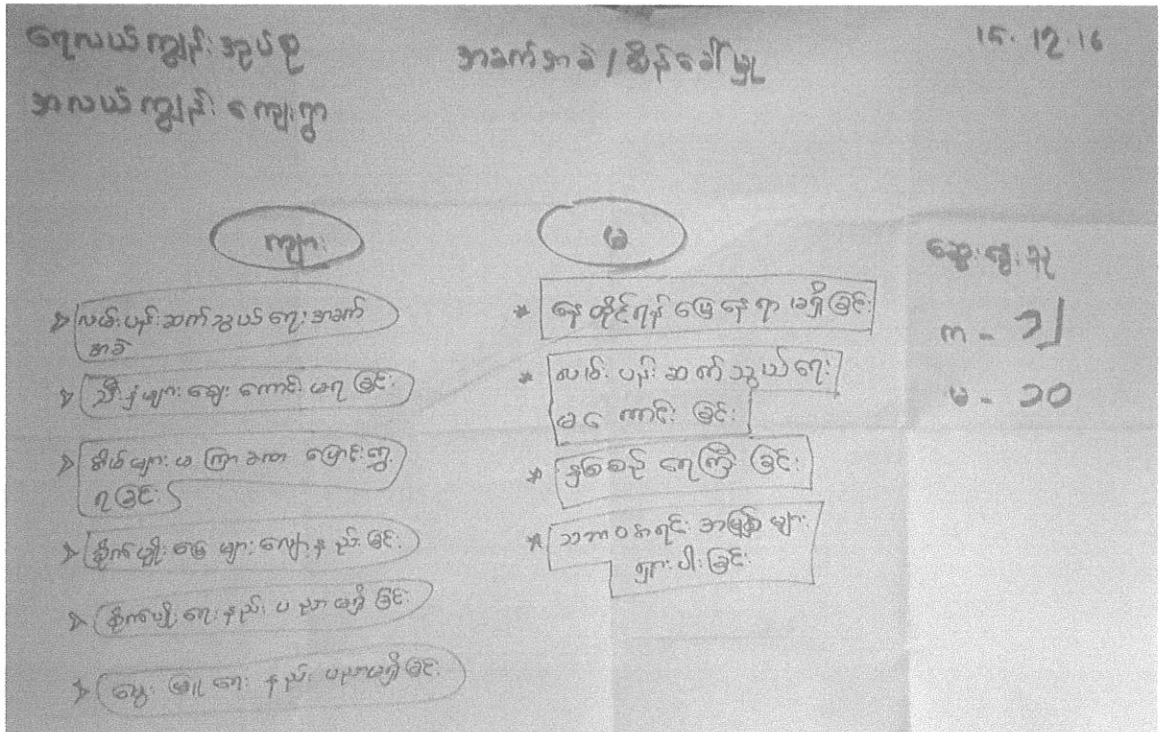 ရေလယ်ကျွန်း အုပ်စု
အလယ်ကျွန်း ကျေးရွာ
အခက်အခဲ / စိန်ခေါ်မှု
15.12.16
ကျား
လမ်းပန်းဆက်သွယ်ရေး အခက်
အခဲ
သီးနှံများ ဈေးကောင်းမရခြင်း
အိမ်များ မကြာခဏ ပြောင်းရွှေ့
ရခြင်း
စိုက်ပျိုးမြေများ လျော့နည်းခြင်း
စိုက်ပျိုးရေးနည်းပညာ မရှိခြင်း
မွေးမြူရေး နည်းပညာမရှိခြင်း
မ
* နေထိုင်ရန် မြေနေရာ မရှိခြင်း
* လမ်းပန်းဆက်သွယ်ရေး
မကောင်းခြင်း
* နှစ်စဉ် ရေကြီးခြင်း
* သဘာဝအရင်းအမြစ်များ
ရှားပါးခြင်း
ဆွေးနွေးသူ
က - ၁၂
မ - ၁၀